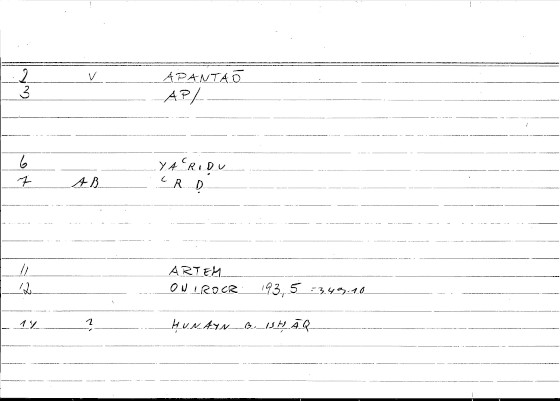 2 V APANTAŌ
3 AP/
6 YAᶜRIḌU
7 AB ᶜRḌ
11 ARTEM
12 ONIROCR 193,5 = 349.10
14 ? ḤUNAYN B. ISḤĀQ